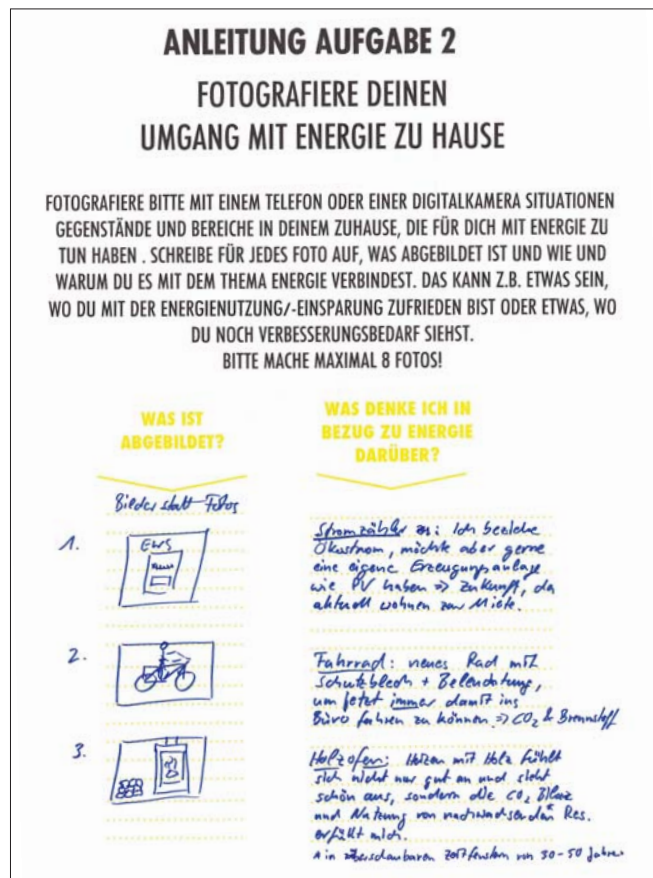 ANLEITUNG AUFGABE 2
FOTOGRAFIERE DEINEN
UMGANG MIT ENERGIE ZU HAUSE
FOTOGRAFIERE BITTE MIT EINEM TELEFON ODER EINER DIGITALKAMERA SITUATIONEN
GEGENSTÄNDE UND BEREICHE IN DEINEM ZUHAUSE, DIE FÜR DICH MIT ENERGIE ZU
TUN HABEN . SCHREIBE FÜR JEDES FOTO AUF, WAS ABGEBILDET IST UND WIE UND
WARUM DU ES MIT DEM THEMA ENERGIE VERBINDEST. DAS KANN Z.B. ETWAS SEIN,
WO DU MIT DER ENERGIENUTZUNG/-EINSPARUNG ZUFRIEDEN BIST ODER ETWAS, WO
DU NOCH VERBESSERUNGSBEDARF SIEHST.
BITTE MACHE MAXIMAL 8 FOTOS!
WAS IST
ABGEBILDET?
WAS DENKE ICH IN
BEZUG ZU ENERGIE
DARÜBER?
Bilder statt Fotos
1.
EWS
Stromzähler : Ich beziehe
Ökostrom, möchte aber gerne
eine eigene Erzeugungsanlage
wie PV haben => Zukunft, da
aktuell wohnen zur Miete.
2.
Fahrrad: neues Rad mit
Schutzblech + Beleuchtung,
um jetzt immer damit ins
Büro fahren zu können => CO₂ & Brennstoff
3.
Holzofen: Heizen mit Holz fühlt
sich nicht nur gut an und sieht
schön aus, sondern die CO₂ Bilanz
und Nutzung von nachwachsenden Res.
erfüllt mich.
in überschaubaren Zeitfenstern von 30-50 Jahren